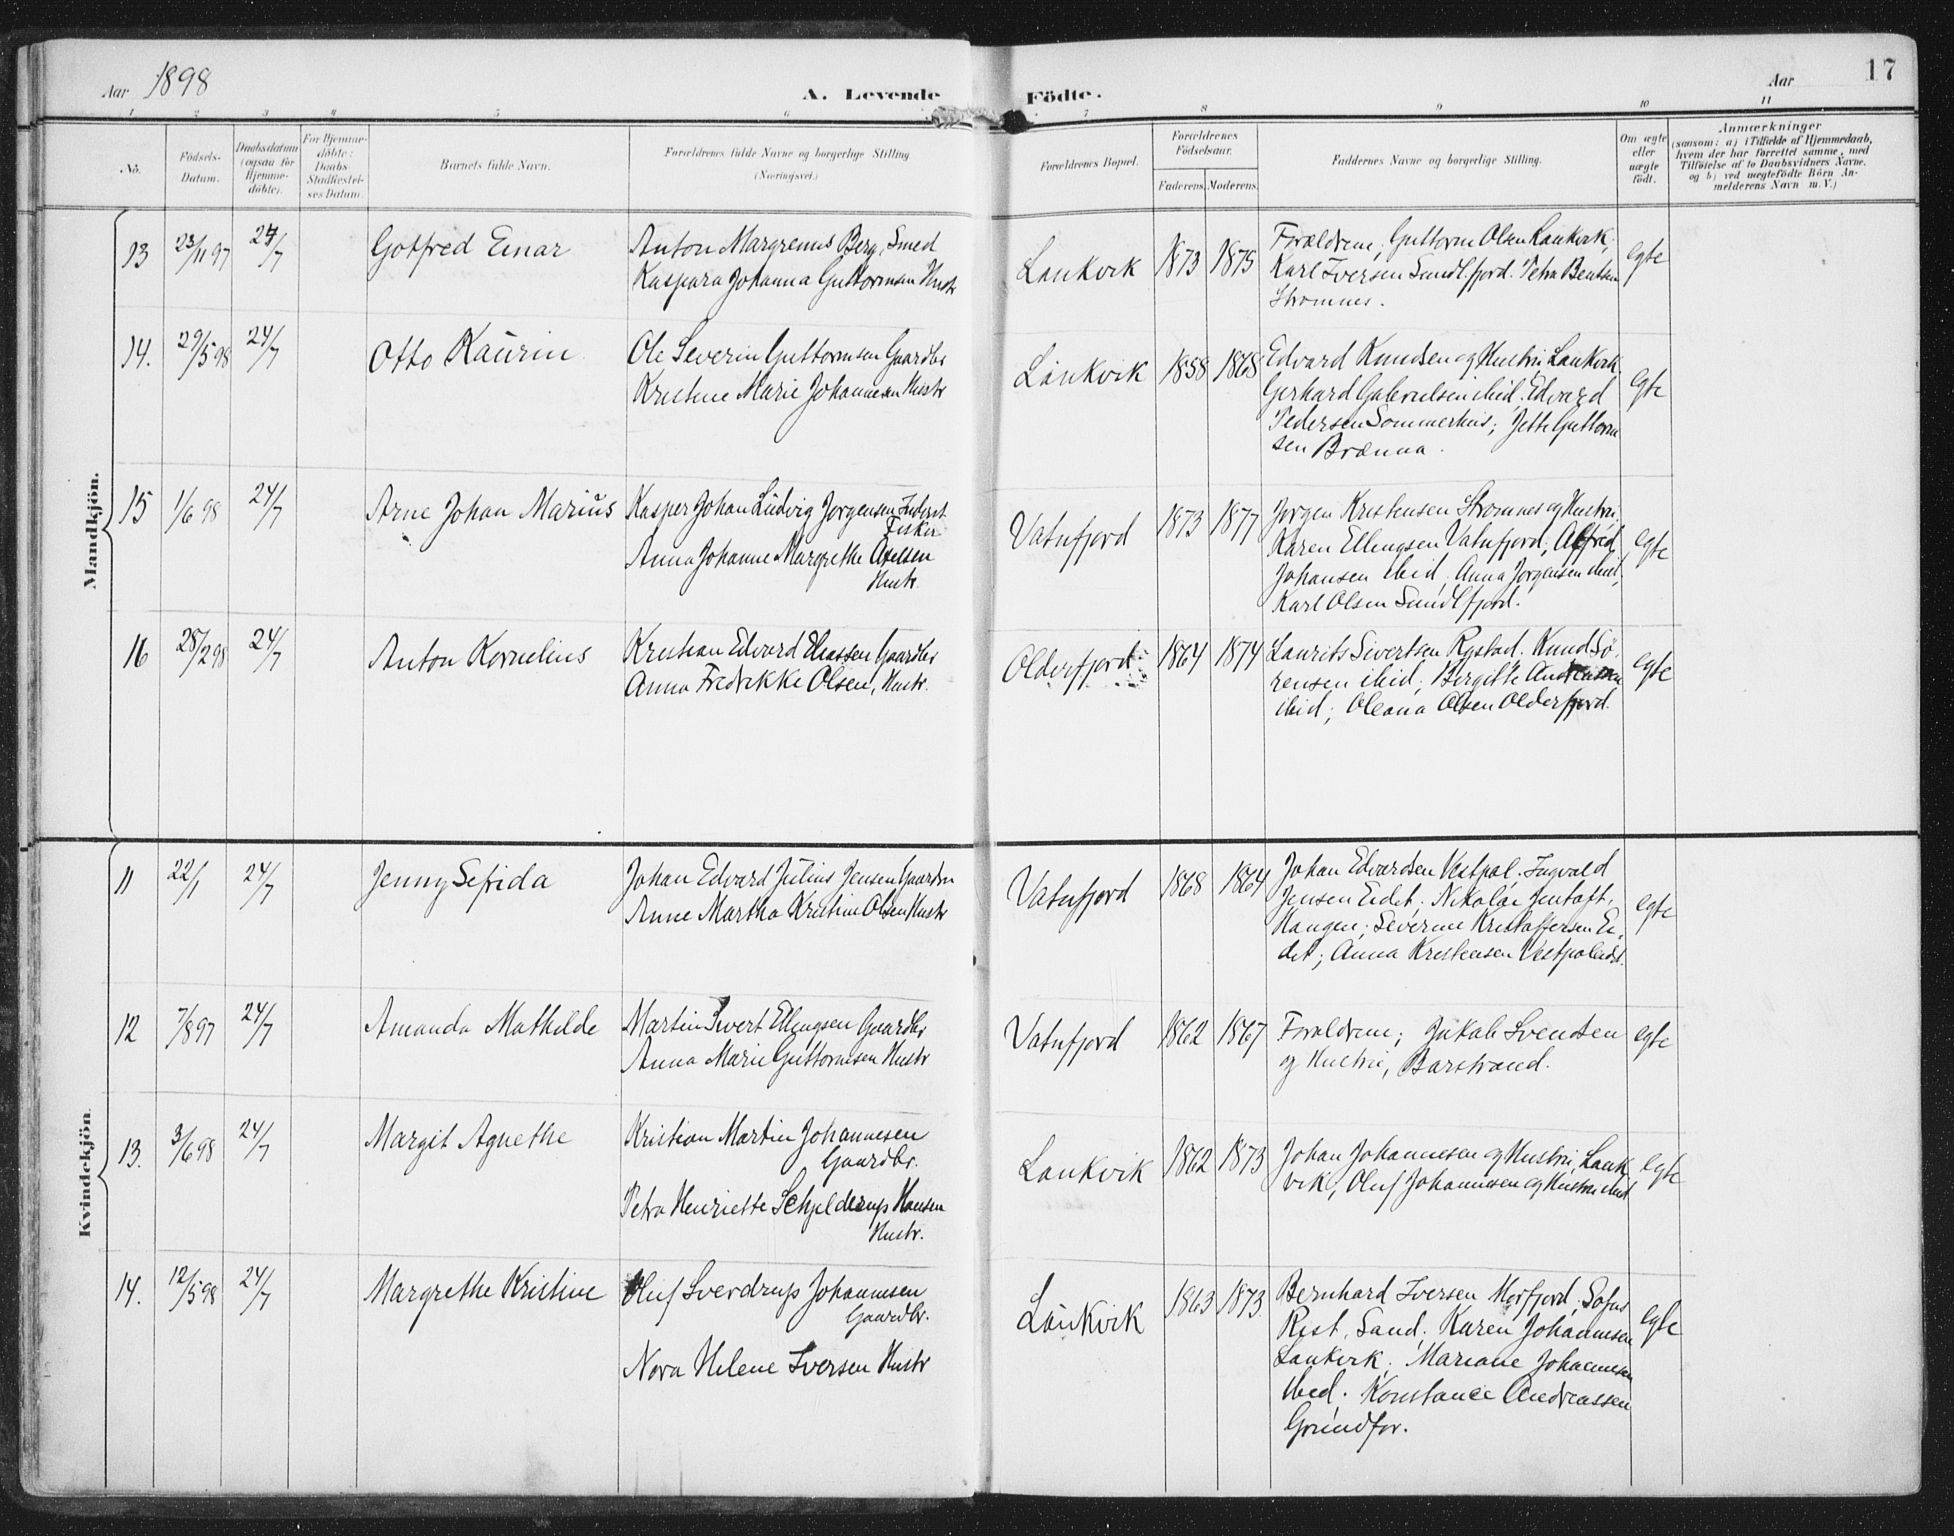 Aar 1898
A. Levende Födte.
Aar
17
1 2 3 4 5 6 7 8 9 10 11
No.
Födsels-Datum.
Daabsdatum (ogsaa for Hjemme-döbte).
For Hjemme-döbte: Daabs Stadfæstel-ses Datum.
Barnets fulde Navn.
Forældrenes fulde Navne og borgerlige Stilling
(Næringsvei.)
Forældrenes Bopæl.
Forældrenes Födselsaar.
Faderens. Moderens.
Faddernes Navne og borgerlige Stilling.
Om ægte eller uægte födt.
Anmærkninger
(saasom: a) i Tilfælde af Hjemmedaab, hvem der har forrettet samme, med Tilföielse af to Daabsvidners Navne. og b) ved uægtefödte Börn An-melderens Navn m. V.)
Mandkjön.
13 23/11 97 24/7 Gotfred Einar
Anton Margrenus Berg, Smed
Kaspara Johanna Guttormsen Hustr
Laukvik 1873 1875
Forældrene; Guttorm Olsen Laukvik;
Karl Iversen Sundlfjord. Petra Bentsen
Strømnes.
egte
14. 29/5 98 24/7 Otto Kaurin
Ole Severin Guttormsen Gaardbr
Kristine Marie Johannesen Hustr
Laukvik 1858 1868
Edvard Knudsen og Hustru, Laukvik
Gerhard Gabrielsen ibid. Edvard
Pedersen Sommerhus; Jette Guttorm
sen Brænna.
egte
15 1/6 98 24/7 Arne Johan Marius
Kasper Johan Ludvig Jørgensen, Inderst
Fisker
Anna Johanne Margrethe Axelsen
Hustr.
Vatnfjord 1873 1877
Jørgen Kristensen Strømnes og Hustru,
Karen Ellingsen Vatnfjord, Alfred
Johansen ibid, Anna Jørgensen ibid,
Karl Olsen Sundlfjord.
egte
16 28/2 98 24/7 Anton Kornelius
Kristian Edvard Eliassen Gaardbr
Anna Fredrikke Olsen, Hustr.
Olderfjord 1864 1874
Laurits Sivertsen Rystad. Knud Sø
rensen ibid; Bergitte Andreassen
ibid; Oleana Olsen Olderfjord.
egte
Kvindekjön.
11 22/1 24/7 Jenny Sefrida
Johan Edvard Julius Jensen Gaardbr
Anne Martha Kristine Olsen Hustr
Vatnfjord 1868 1864
Johan Edvardsen Vestpol. Ingvald
Jensen Eidet. Nikolai Jentoft,
Haugen; Severine Kristoffersen Ei
det; Anna Kristensen Vestpol
egte
12 7/8 97 24/7 Amanda Mathilde
Martin Sivert Ellingsen Gaardbr
Anna Marie Guttormsen Hustr
Vatnfjord 1862 1867
Forældrene; Jakob Svendsen
og Hustru, Barstrand.
egte
13. 3/6 98 24/7 Margit Agnethe
Kristian Martin Johannesen
Gaardbr.
Petra Henriette Schjelderup Hansen
Hustr.
Laukvik 1862 1873
Johan Johannesen og Hustru, Lauk
vik, Oluf Johannesen og Hustru ibid
egte
14. 12/5 98 24/7 Margrethe Kristine
Oluf Sverdrup Johannesen
Gaardbr.
Nora Helene Iversen Hustr
Laukvik 1863 1873
Bernhard Iversen Morfjord; Sofus
Rist, Sand; Karen Johannesen
Laukvik. Mariane Johannesen
ibid. Konstance Andreassen
Grundfor.
egte